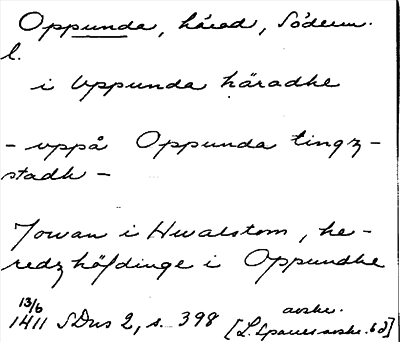 Oppunda, härad, Söderm.
l.
i Uppunda häradhe
- uppå Oppunda tingz-
stadh -
Jowan i Hwalstom, he-
redzhöfdinge i Oppundhe
13/6 avskr.
1411 SDns 2, s. 398 [L. Sparres avskr. 60]